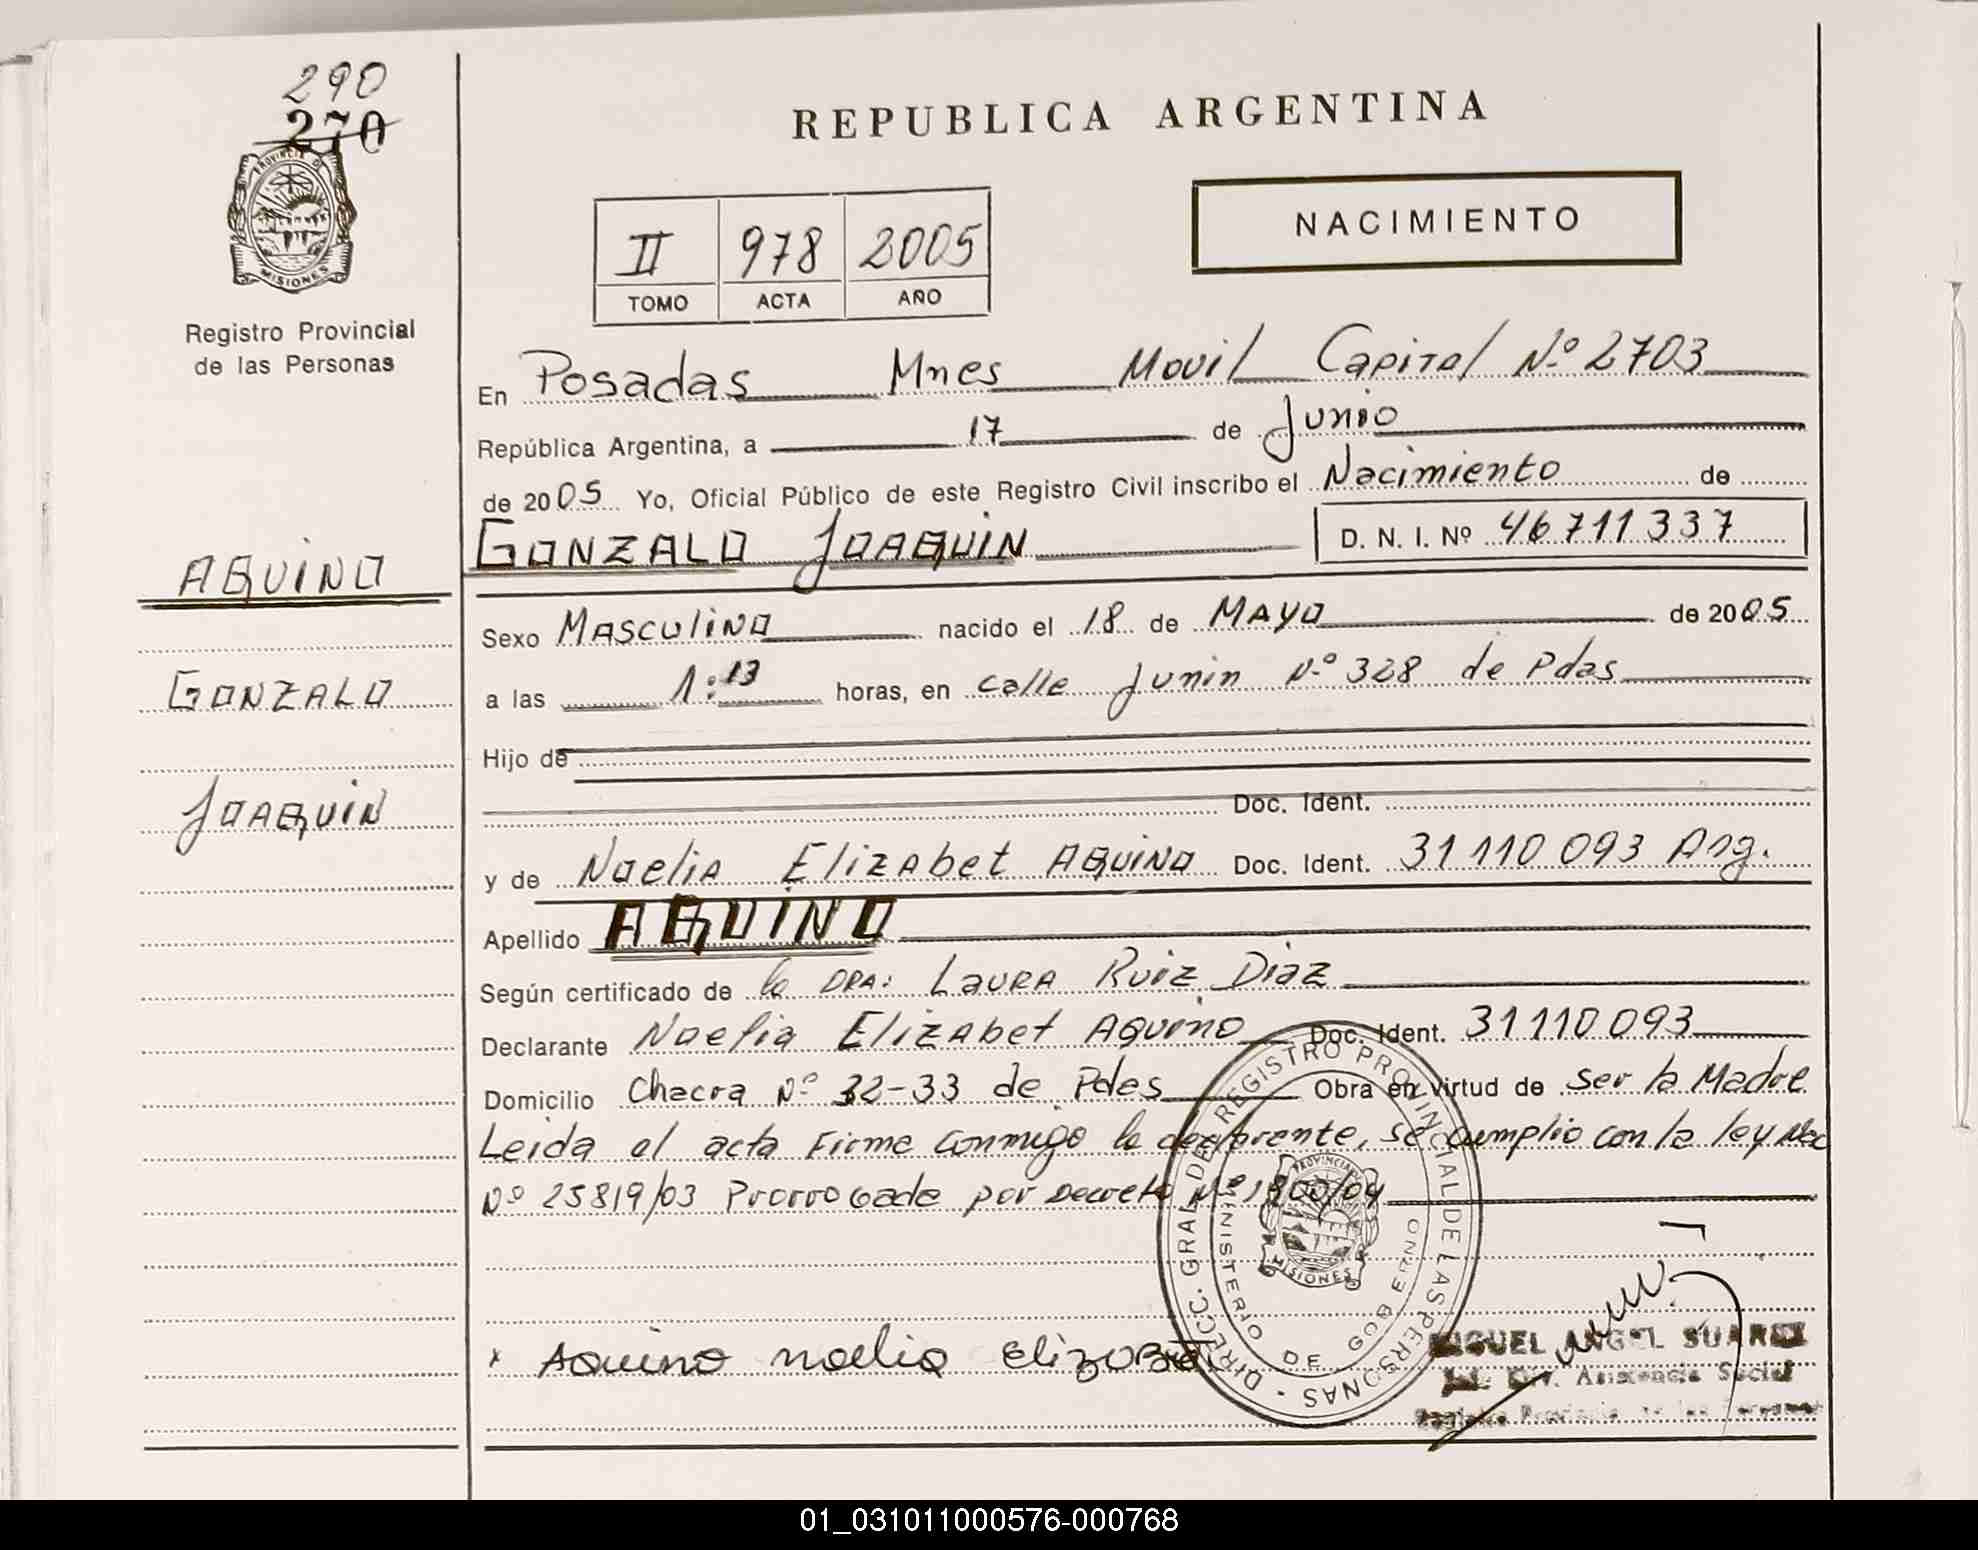 290
270
PROVINCIA DE
MISIONES
Registro Provincial
de las Personas
AQUINO
GONZALO
JOAQUIN
REPUBLICA ARGENTINA
II 978 2005
TOMO ACTA AÑO
NACIMIENTO
En Posadas Mnes Movil Capital Nº 2703
República Argentina, a 17 de Junio
de 2005 Yo, Oficial Público de este Registro Civil inscribo el Nacimiento de
GONZALO JOAQUIN D. N. I. Nº 46711337
Sexo Masculino nacido el 18 de Mayo de 2005
a las 1:13 horas, en calle Junin Nº 328 de Pdas
Hijo de
Doc. Ident.
y de Noelia Elizabet Aquino Doc. Ident. 31110093 Arg.
Apellido AQUINO
Según certificado de la DRA: Laura Ruiz Diaz
Declarante Noelia Elizabet Aquino Doc. Ident. 31110093
Domicilio Chacra Nº 32-33 de Pdas Obra en virtud de ser la Madre
Leida el acta firme conmigo la declarante, se cumplio con la ley Nac
Nº 25819/03 Prorrogada por Decreto Nº
DIRECC. GRAL DE REGISTRO PROVINCIAL DE LAS PERSONAS
MINISTERIO DE GOBIERNO
PROVINCIA
MISIONES
x Aquino noelia Elizabet
MIGUEL ANGEL SUAREZ
Div. Asistencia Social